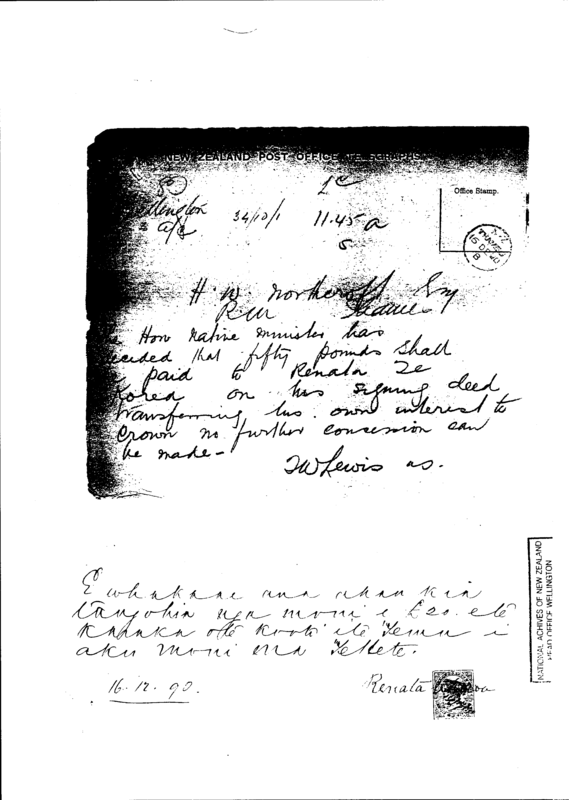 NEW ZEALAND POST OFFICE TELEGRAPHS
Office Stamp.
34/10/1 11.45 a
THAMES
H. W. Northcroft Esq
R M Thames
Hon Native Minister has
decided that fifty pounds shall
paid to Renata Te
Korea on his signing deed
transferring his own interest to
Crown no further concession can
be made -
T W Lewis us.
E whakaae ana ahau kia
tangohia nga moni e £20. e te
o te Kooti i te i
aku moni ma te Kete.
16. 12. 90.
Renata
NATIONAL ACHIVES OF NEW ZEALAND
HEAD OFFICE WELLINGTON